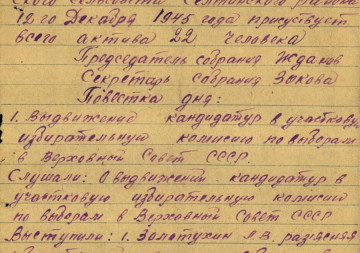 ского сельсовета Селтинского района
12го Декабря 1945 года присуствует
всего актива 22 человека
Председатель собрания Жданов
Секретарь собрания Зыкова
Повестка дня:
1. Выдвижение кандидатур в участкову
избирательную комисию по выборам
в Верховный Совет СССР.
Слушали: О выдвижении кандидатур в
участковую избирательную комисию
по выборам в Верховный Совет СССР
Выступили: 1. Золотухин Л.В. разясняя